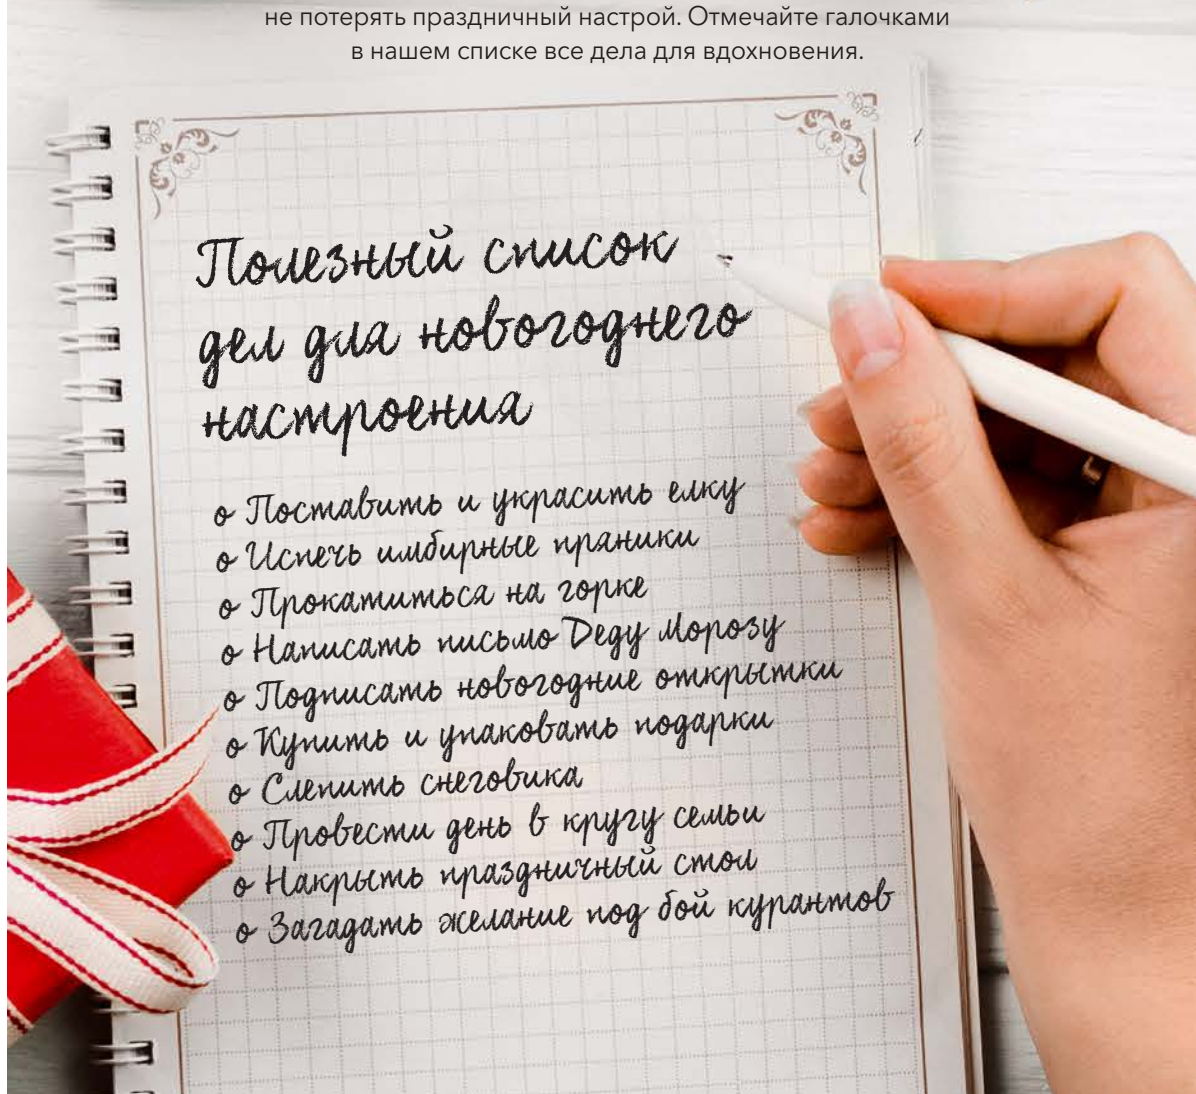 не потерять праздничный настрой. Отмечайте галочками
в нашем списке все дела для вдохновения.
Полезный список
дел для новогоднего
настроения
о Поставить и украсить елку
о Испечь имбирные пряники
о Прокатиться на горке
о Написать письмо Деду Морозу
о Подписать новогодние открытки
о Купить и упаковать подарки
о Слепить снеговика
о Провести день в кругу семьи
о Накрыть праздничный стол
о Загадать желание под бой курантов